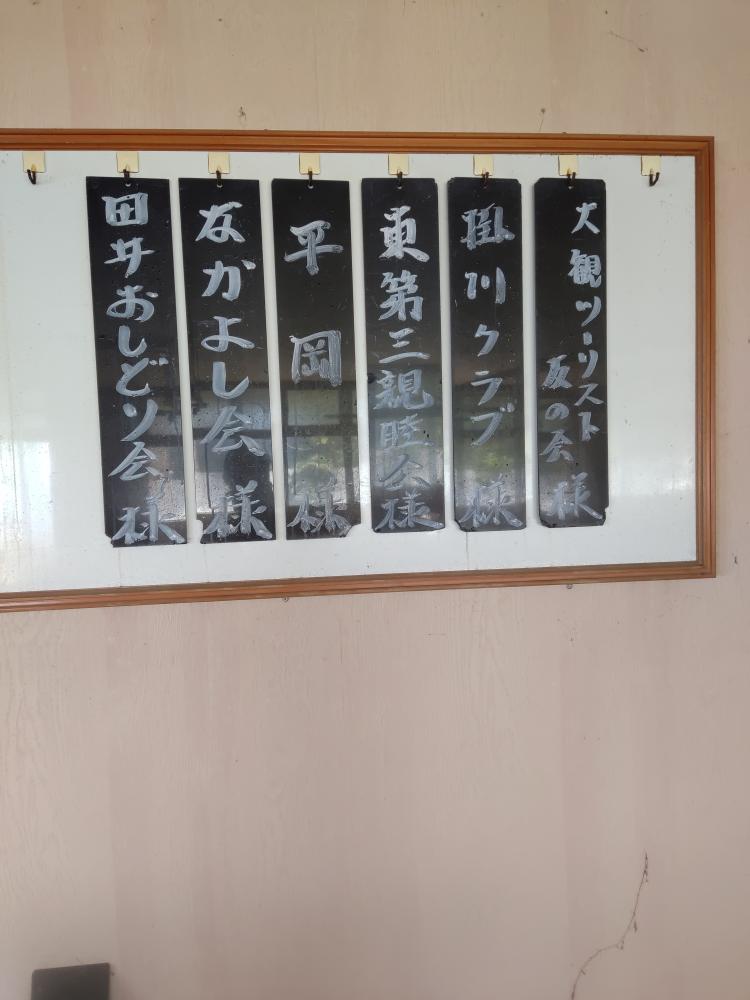 大観ツーリスト
友の会 様
掛川クラブ 様
東第三親睦会様
平岡 様
なかよし会 様
田井おしどり会 様